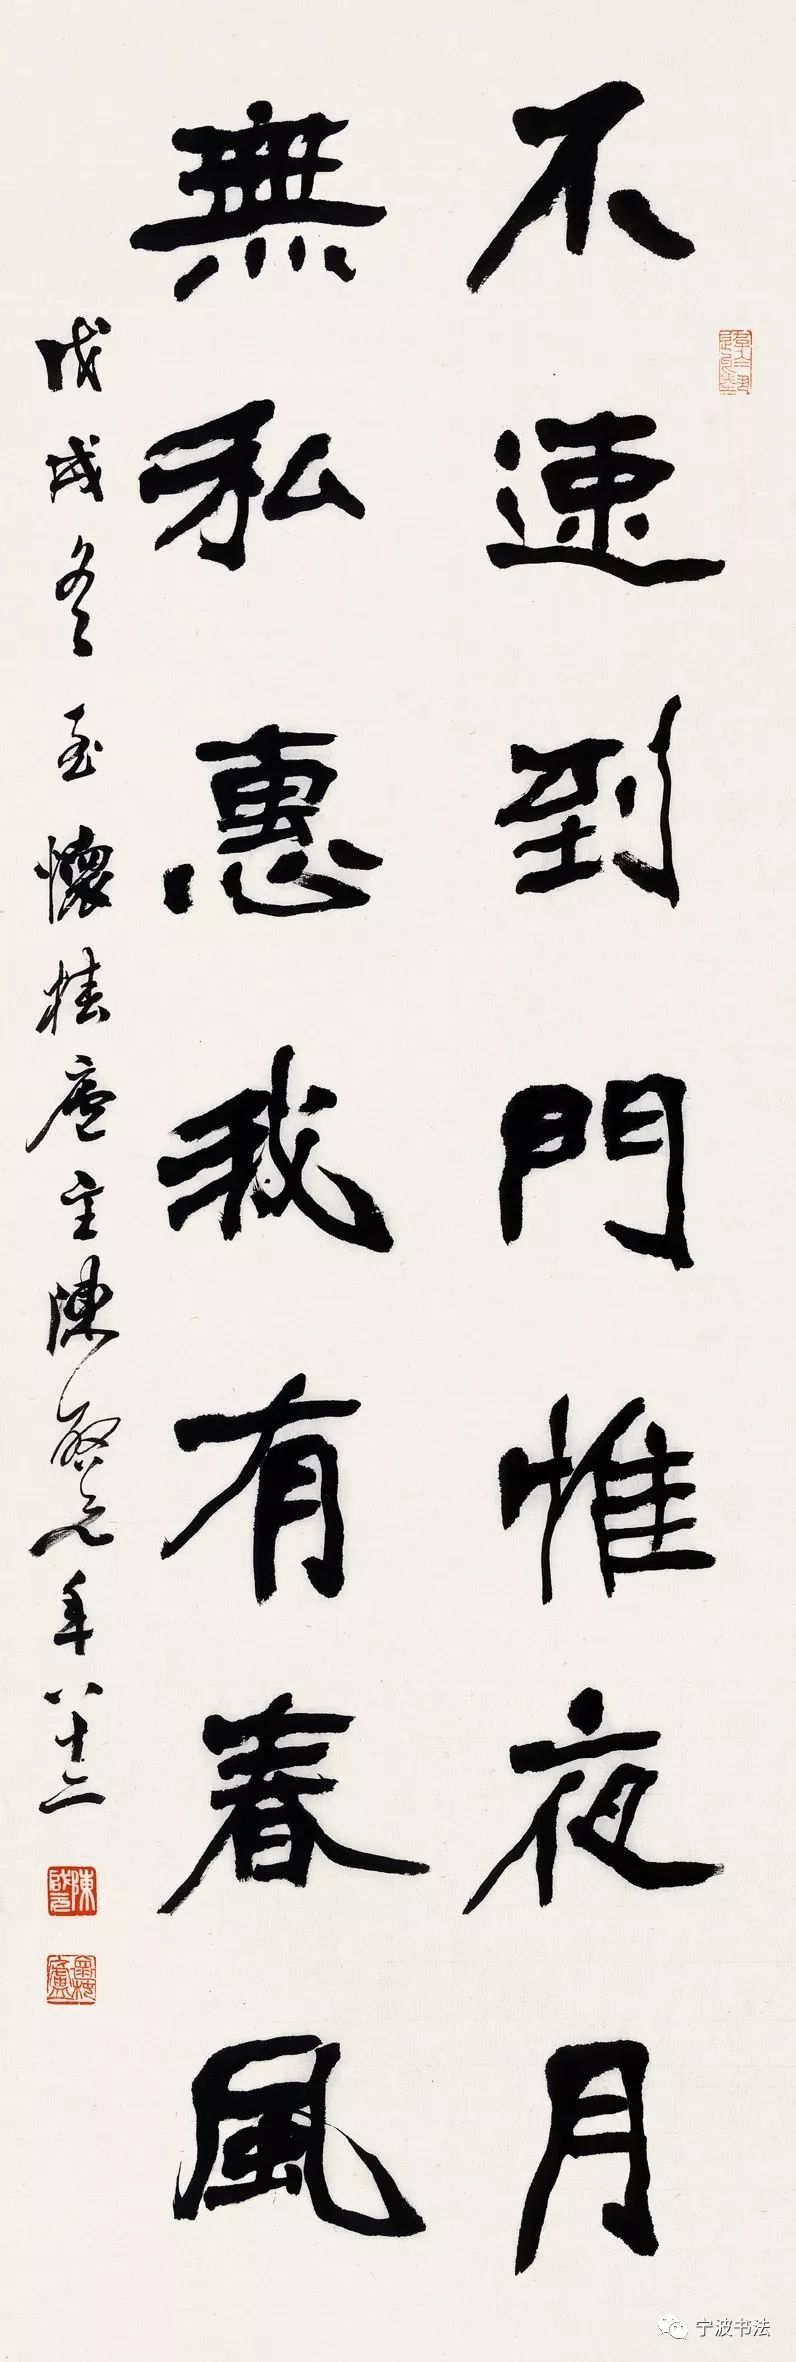 不速到門惟夜月
無私惠我有春風
戊戌冬至懷桂廬主陳啟元年八十二
宁波书法